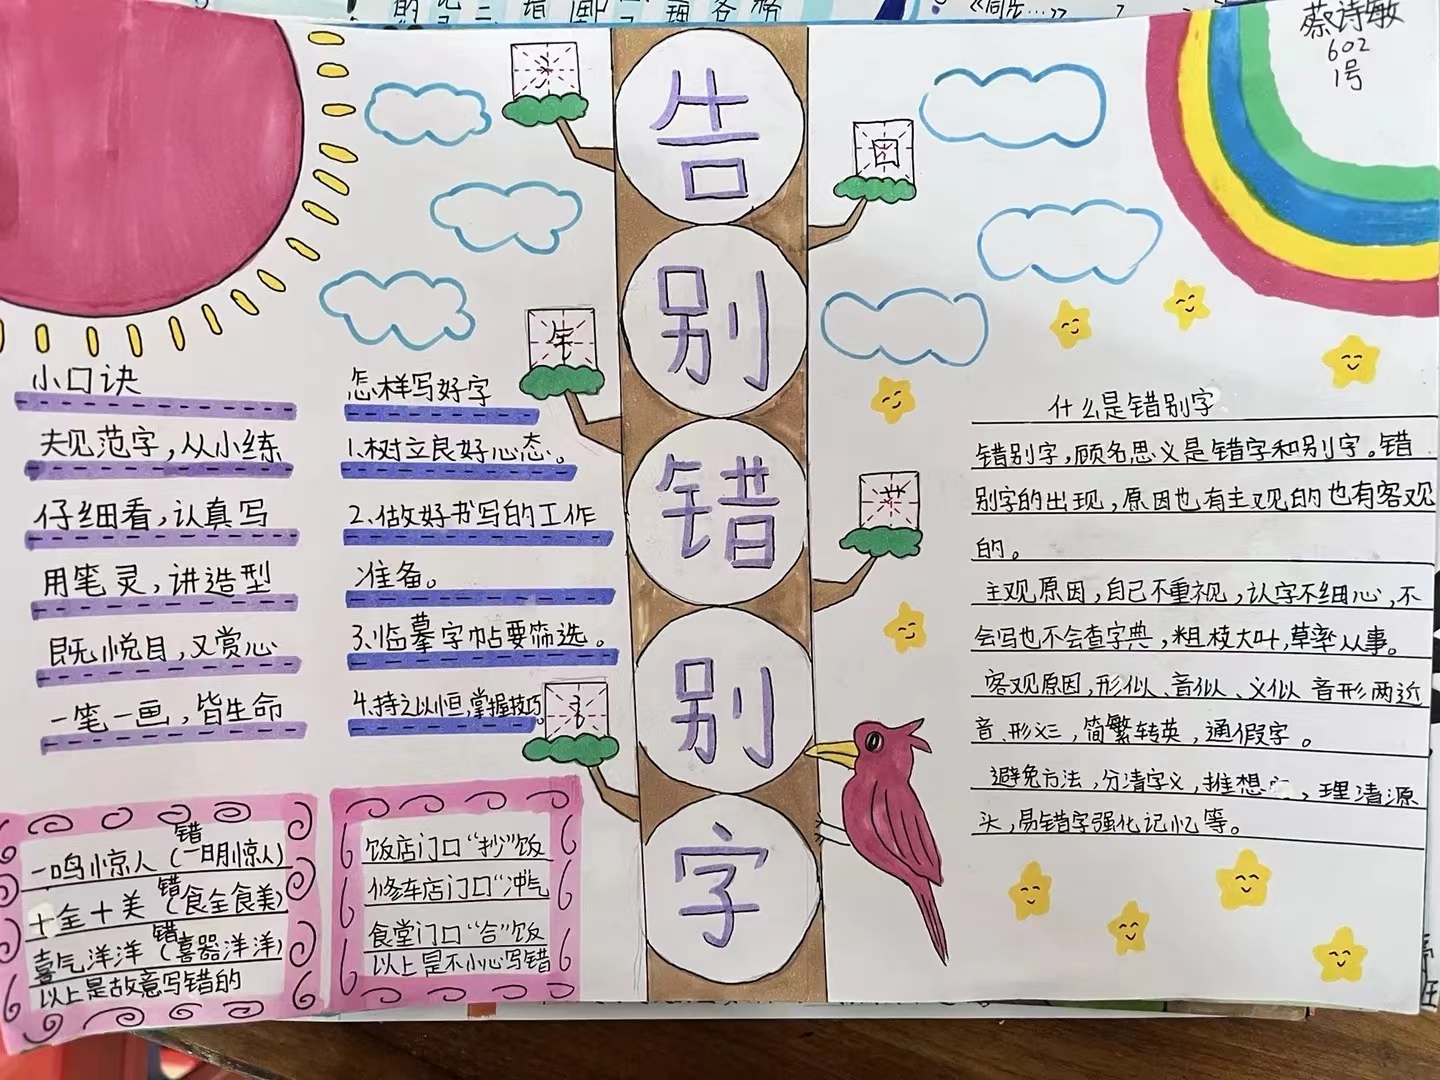 蔡诗敏
602
1号
告别错别字
小口诀
夫见范字，从小练
仔细看，认真写
用笔灵，讲造型
既悦目，又赏心
一笔一画，皆生命
怎样写好字
1.树立良好心态。
2.做好书写的工作
准备。
3.临摹字帖要筛选。
4.持之以恒，掌握技巧。
什么是错别字
错别字，顾名思义是错字和别字。错
别字的出现，原因也有主观的也有客观
的。
主观原因，自己不重视，认字不细心，不
会写也不会查字典，粗枝大叶，草率从事。
客观原因，形似、音似、义似 音形两近
音、形义三，简繁转英，通假字。
避免方法，分清字义，推想 ，理清源
头，易错字强化记忆等。
一鸣惊人 错(一明惊人)
十全十美 错(食全食美)
喜气洋洋 错(喜器洋洋)
以上是故意写错的
饭店门口“抄”饭
修车店门口“冲气
食堂门口“合”饭
以上是不小心写错